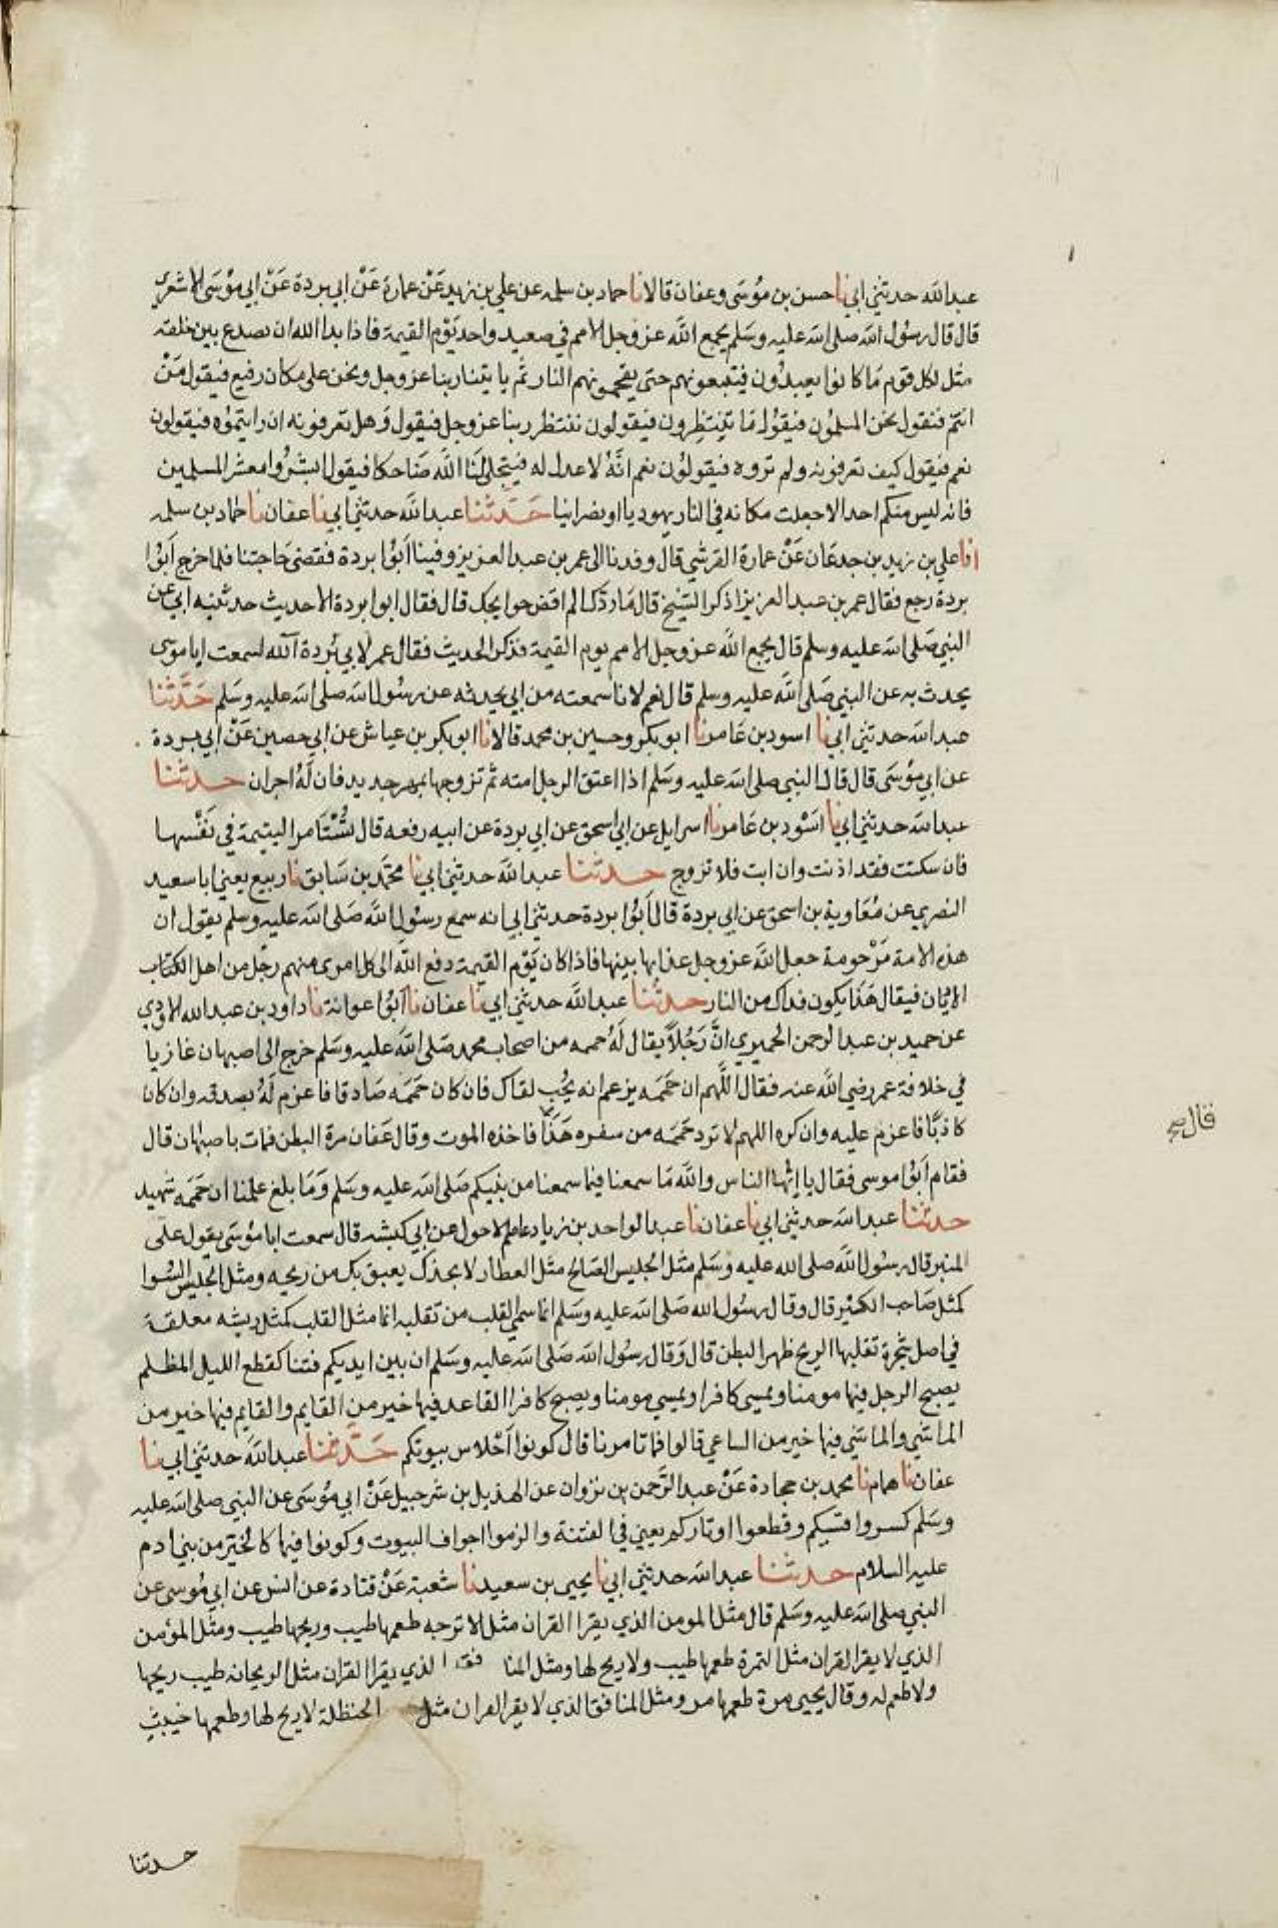 عبدالله حدثني ابي نا حسن بن مُوسَى وعفان قالا نا حماد بن سلمه عن علي بن زيد عَنْ عمارة عَنْ ابي بردة عَنْ ابي مؤسَى الاشعري
قال قال رسُول الله صلى الله عليه وسَلم يجمع الله عز وجل الامم في صعيد واحد يَوْم القيمة فاذا بدا الله ان يصدع بين خلقه
مثل لكل قوم مَا كانوا يعبدُون فيتبعونهم حتى يقحمونهم النار ثم ياتينا ربنا عز وجل ونحن على مكان رفيع فيقول مَنْ
انتم فنقول نحن المسلمُون فيقول مَا تَنتظِرون فيقولون ننتظر ربنا عز وجل فيقول وَهل تعرفونه ان رايتموُه فيقولون
نعم فيقول كيف تعرفونه ولم تروه فيقولوُن نعم انَّهُ لا عدل له فيَتجلى لنَا الله ضَاحكا فيقول ابشرُوا معشر المسلمين
فانه ليس منكم احد الا جعلت مكانه في النار يهوديا او نصرانيا حَدَّثنا عبدالله حدثني ابي نا عفان نا حماد بن سلمه
انا علي بن زيد بن جدعَان عَنْ عمارة القرشي قال وفدنا الى عمر بن عبد العزيز وفينا اَبوُا بردة فقضى حَاجتنا فلما خرج اَبوُا
بردة رجع فقال عمر بن عبد العزيز اذكر الشيخ قال مَا ردّك الم اقض حوايجك قال فقال ابوا بردة الا حديث حدثنيه ابي عن
النبي صَلى الله عليه وسلم قال يجمع الله عز وجل الامم يوم القيمة فذكر الحديث فقال عمر لابي بُردة آلله لسمعت ابا موسى
يحدث به عن النبي صَلى الله عليه وسلم قال نعم لانا سمعته من ابي يحدثه عن رسُول الله صلى الله عليه وسَلم حَدَّثنا
عبدالله حدثني ابي نا اسود بن عَامر نا ابو بكر وحسين بن محمد قالا نا ابو بكر بن عياش عن ابي حصين عَنْ ابي بردة
عن ابي مؤسَى قال قال النبي صلى الله عليه وسَلم اذا اعتق الرجل امته ثم تزوجها بمهر جديد فان لَهُ اجران حدثنا
عبدالله حدثني ابي نا اسْود بن عَامر نا اسرايل عن ابي اسحق عن ابي بردة عن ابيه رفعه قال تُسْتَامر اليتيمة في نَفْسها
فان سكتت فقد اذنت وان ابت فلا تزوج حدثنا عبدالله حدثني ابي نا محمَّد بن سَابق نا ربيع يعني ابا سعيد
النصري عن مُعَاوية بن اسحق عن ابي بردة قال اَبوُا بردة حدثني ابي انه سمع رسُول الله صَلى الله عليه وسلم يقول ان
هذه الامة مَرْحومة جعل الله عز وجل عذابها بينها فاذا كان يَوْم القيمة دفع الله الى كل امرى منهم رجل من اهل الكتاب
الايمان فيقال هَذا يكون فداك من النار حدثنا عبدالله حدثني ابي نا عفان نا ابوُا عوانة نا داود بن عبدالله الاودي
عن حميد بن عبد الرحمن الحميري اَنَّ رَجُلاً يقال لَهُ حممه من اصحاب محمد صَلى الله عليه وسَلم خرج الى اصبهان غازيا
في خلافة عمر رضي الله عنه فقال اللهم ان حَمَمَه يزعم انه يُحُب لقاك فان كان حَمَمَه صَادقا فاعزم لَهُ بصدقه وان كان
كاذبًا فاعزم عليه وان كره اللهم لا ترد حَمَمَه من سفره هَذَا فاخذه الموت وقال عَفان مرة البطن فمات باصبهان قال
قال صح
فقام اَبوُا موسى فقال يا ايُّها الناس والله مَا سمعنا فيما سمعنا من نبيكم صَلى الله عليه وسَلم وَمَا بلغ علمنا ان حَمَمَه شهيد
حدثنا عبدالله حدثني ابي نا عفان نا عبد الواحد بن زياد عاصم الاحول عن ابي كبشه قال سمعت ابا مؤسَى يقول على
المنبر قال رسُول الله صلى الله عليه وسَلم مثل الجليس الصَالح مثل العطار لا يجدك يعبق بك من ريحه ومثل الجليس السُوا
كمثل صَاحب الكير قال وقال رسُول الله صَلى الله عليه وسَلم انما سمّي القلب من تقلبه انما مثل القلب كمثل ريشه معلقة
في اصل شجرة تقلبها الريح ظهر البطن قال وَقال رسُول الله صَلى الله عليه وسَلم ان بين ايديكم فتنا كقطع الليل المظلم
يصبح الرجل فيها مومنا ويمسي كافرا ويمسي مومنا ويصبح كافرا القاعد فيها خير من القايم والقايم فيها خير من
الماشي والماشي فيها خير من الساعي قالوا فما تامرنا قال كونوا اَحْلاس بيوتكم حَدَّثنا عبدالله حدثني ابي نا
عفان نا همام نا محمد بن جحادة عَنْ عبد الرَّحمن بن نزوان عن الهذيل بن شرحبيل عَنْ ابي مُوسَى عن النبي صلى الله عليه
وسَلم كسروا قسيكم وقطعوا اوتاركم يعني في الفتنة والزموا اجواف البيوت وكونوا فيها كالخَيّر من بني ادم
عليه السلام حدثنا عبدالله حدثني ابي نا يحيى بن سعيد نا شعبة عَنْ قتادة عن انس عن ابي مُوسى عن
النبي صلى الله عليه وسَلم قال مثل المومن الذي يقرا القران مثل الاترجه طعمها طيب وريحها طيب ومثل المؤمن
الذي لا يقرا القران مثل التمرة طعمها طيب ولا ريح لها ومثل المنا فق الذي يقرا القران مثل الريحانه طيب ريحها
ولا طعم له وقال يحيى مرة طعمها مر ومثل المنافق الذي لا يقرا القران مثل الحنظلة لا ريح لها وطعمها خبيث
حدثنا